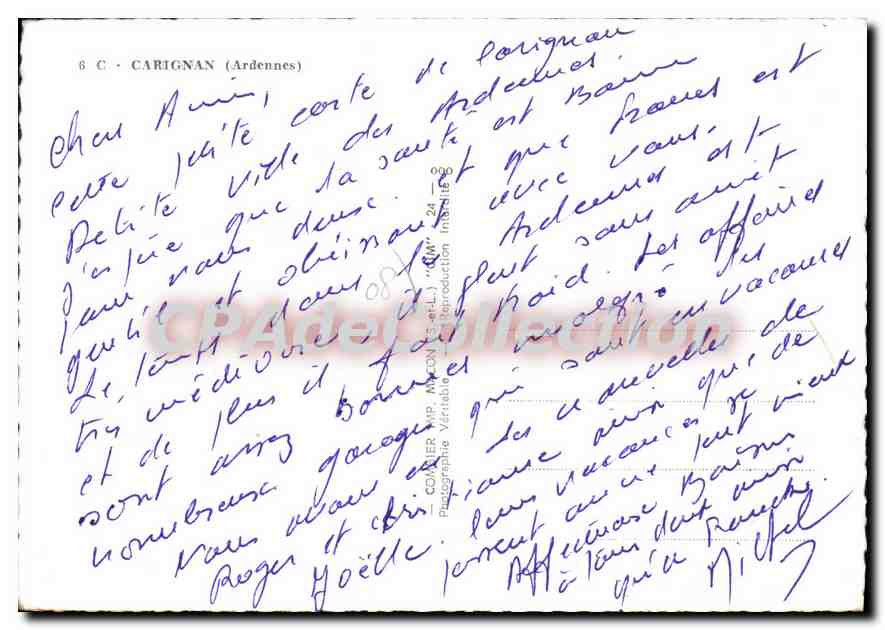 6 C - CARIGNAN (Ardennes)
Chers Amis,
cette petite carte de Carignan
Petite ville des Ardennes.
J'espère que la santé est Bonne
pour vous deux. et que Francis est
gentil et obéissant avec vous.
Le temps dans les Ardennes est
très médiocre il pleut sans arrêt
et de plus il fait froid. Les affaires
sont assez Bonnes malgré les
nombreux garages qui sont en vacances
Nous avons eu des nouvelles de
Roger et Christiane ainsi que de
Joëlle. leurs vacances se
passent on ne peut mieux
Affectueux Baisers
à tous deux ainsi
qu'à Francis.
Michel
— COMBIER IMP. MACON (S.-et-L.) "CIM" 24 - 98
Photographie Véritable - Reproduction Interdite
08
CPAdeCollection